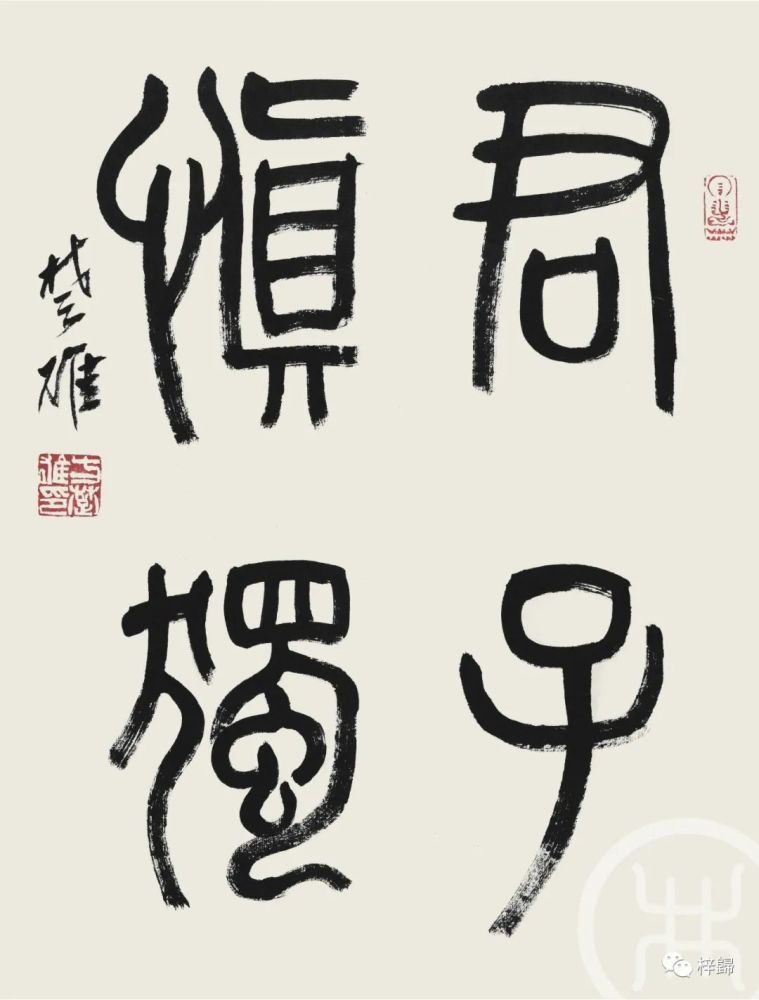 君子
慎獨
楚雄
梓歸